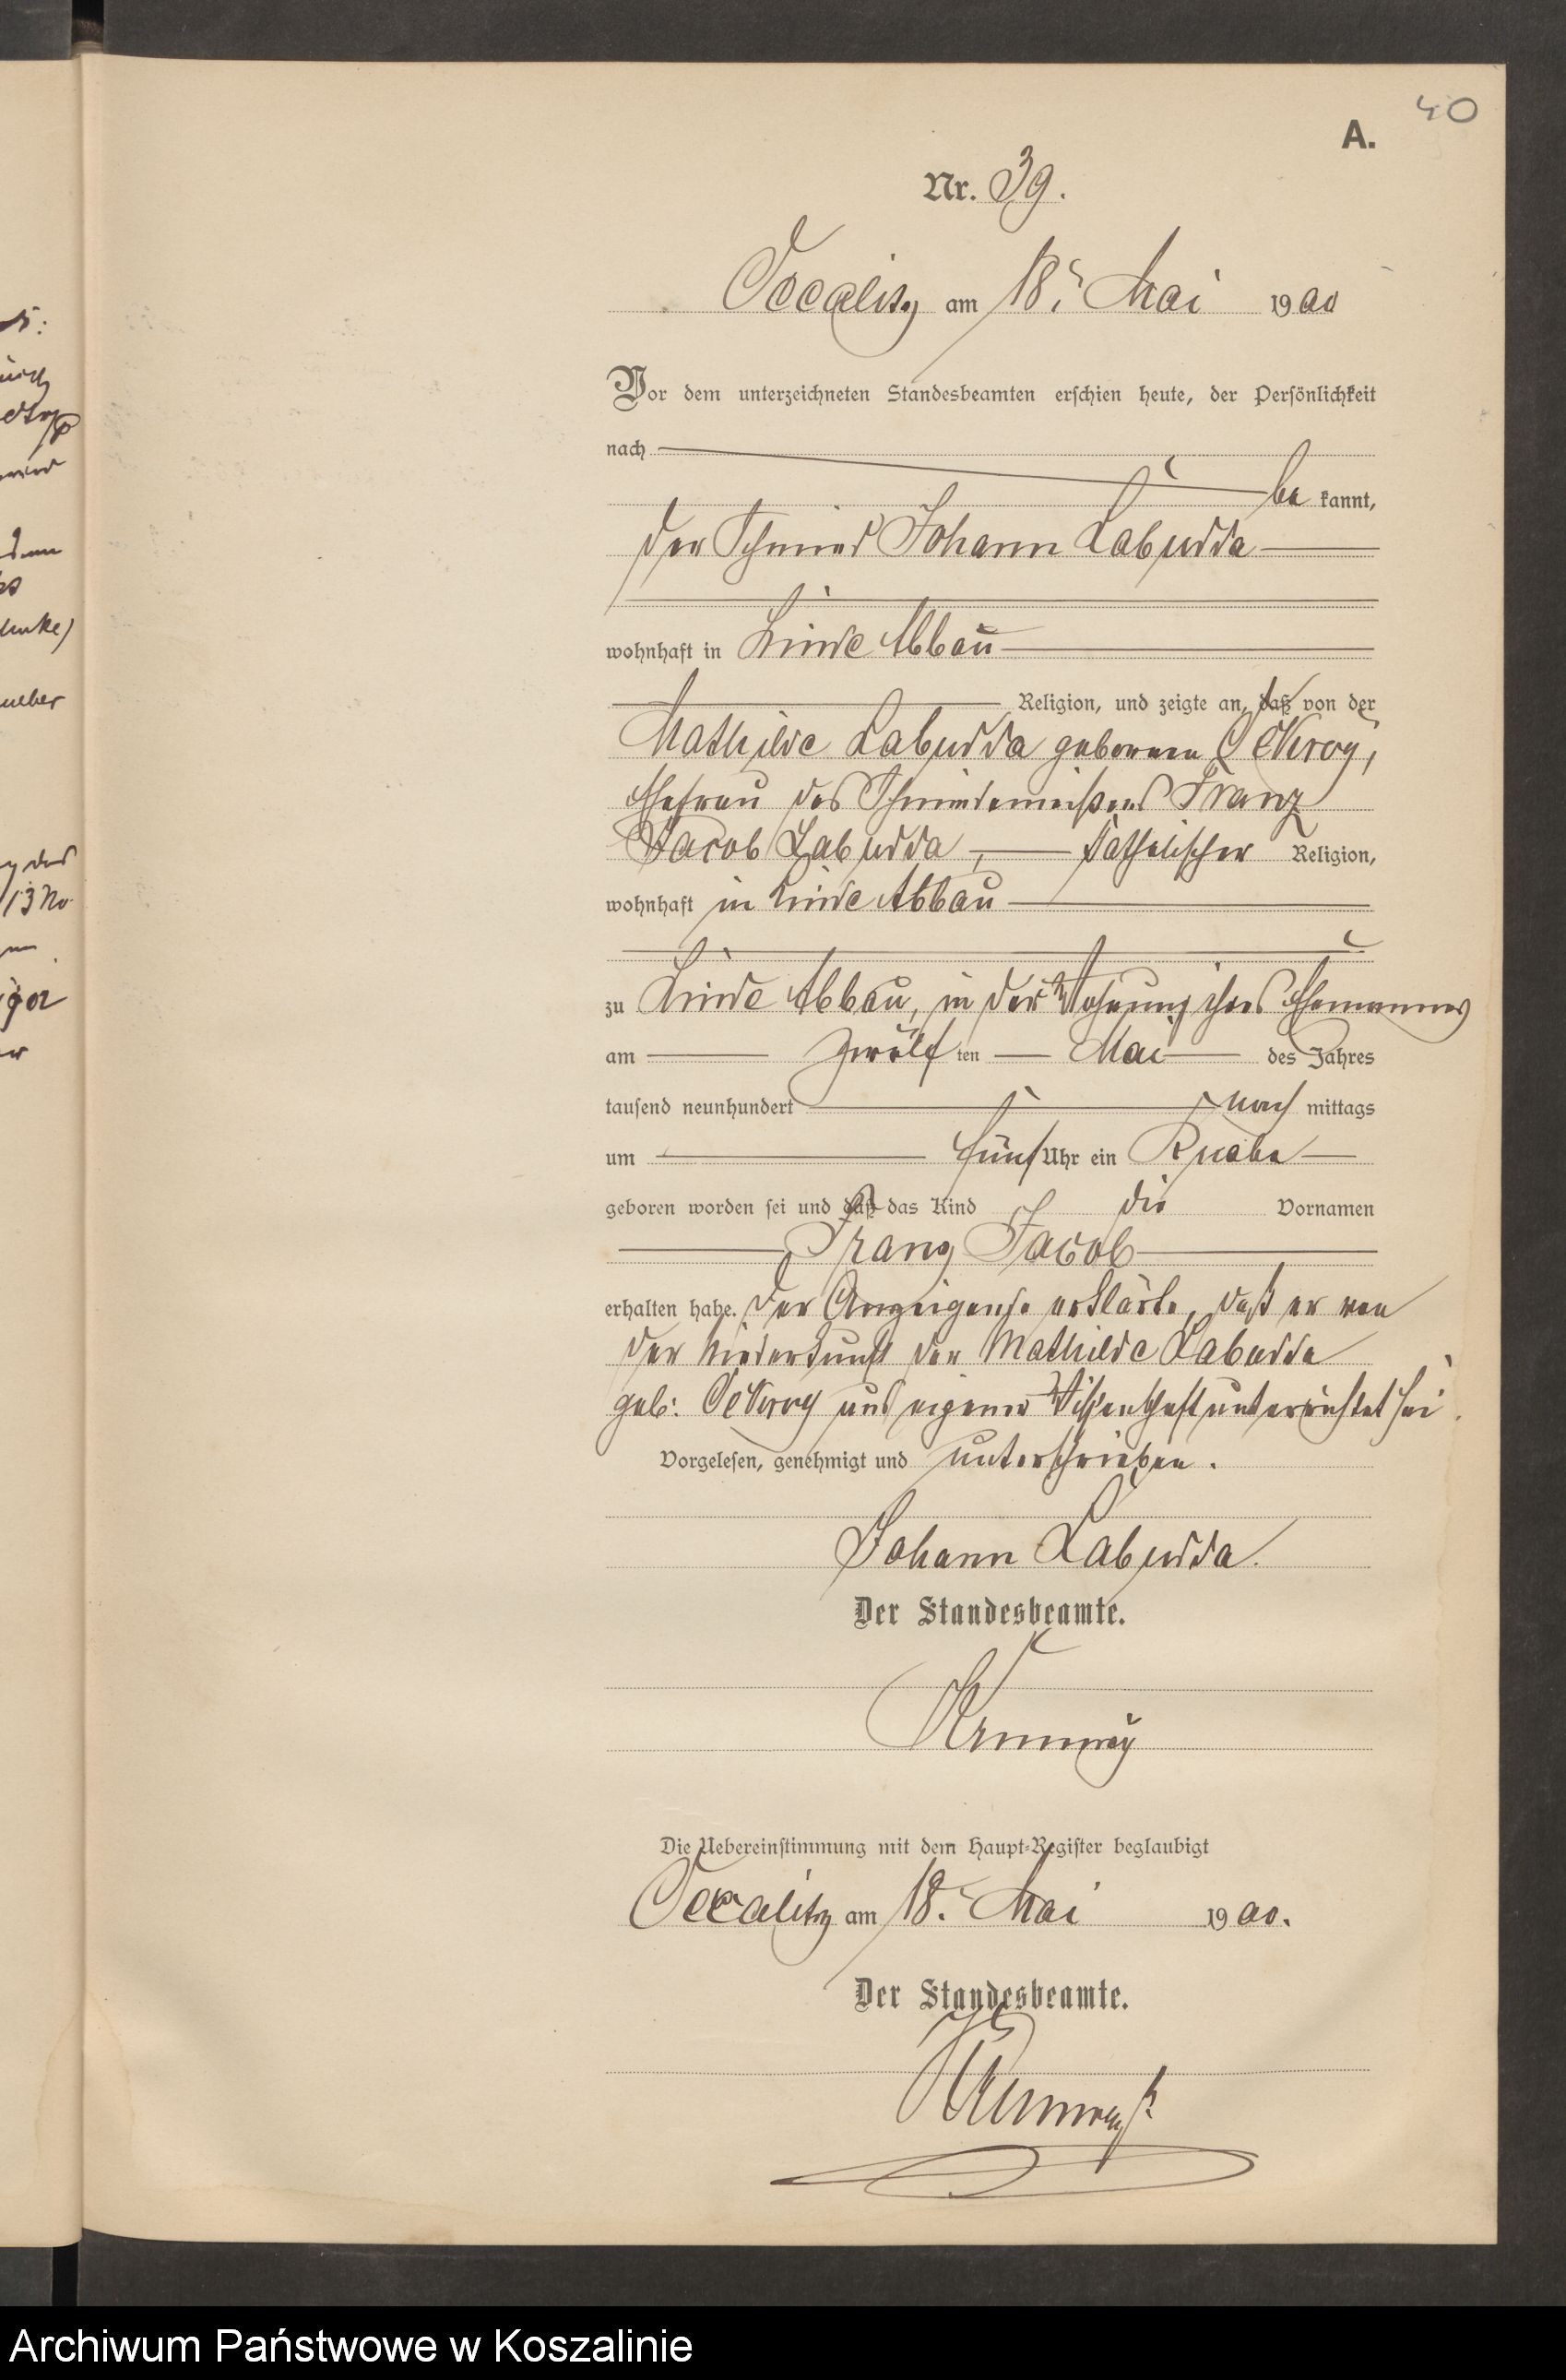 40
A.
Nr. 39.
Occalitz am 18. Mai 1900
Vor dem unterzeichneten Standesbeamten erschien heute, der Persönlichkeit
nach
be kannt,
der Schmied Johann Labudda
wohnhaft in Linde Abbau
Religion, und zeigte an, daß von der
Mathilde Labudda geborenen
Ehefrau des Schmiedemeisters Franz
Jacob Labudda, katholischer Religion,
wohnhaft in Linde Abbau
zu Linde Abbau, in der Wohnung ihres Ehemannes
am zwölf ten Mai des Jahres
tausend neunhundert nach mittags
um fünf Uhr ein Knabe
geboren worden sei und daß das Kind die Vornamen
Franz Jacob
erhalten habe. Der Anzeigende erklärte, daß er von
der Niederkunft der Mathilde Labudda
geb: aus eigener Wissenschaft unterrichtet sei.
Vorgelesen, genehmigt und unterschrieben.
Johann Labudda.
Der Standesbeamte.
Die Uebereinstimmung mit dem Haupt-Register beglaubigt
Occalitz am 18. Mai 1900.
Der Standesbeamte.
Archiwum Państwowe w Koszalinie